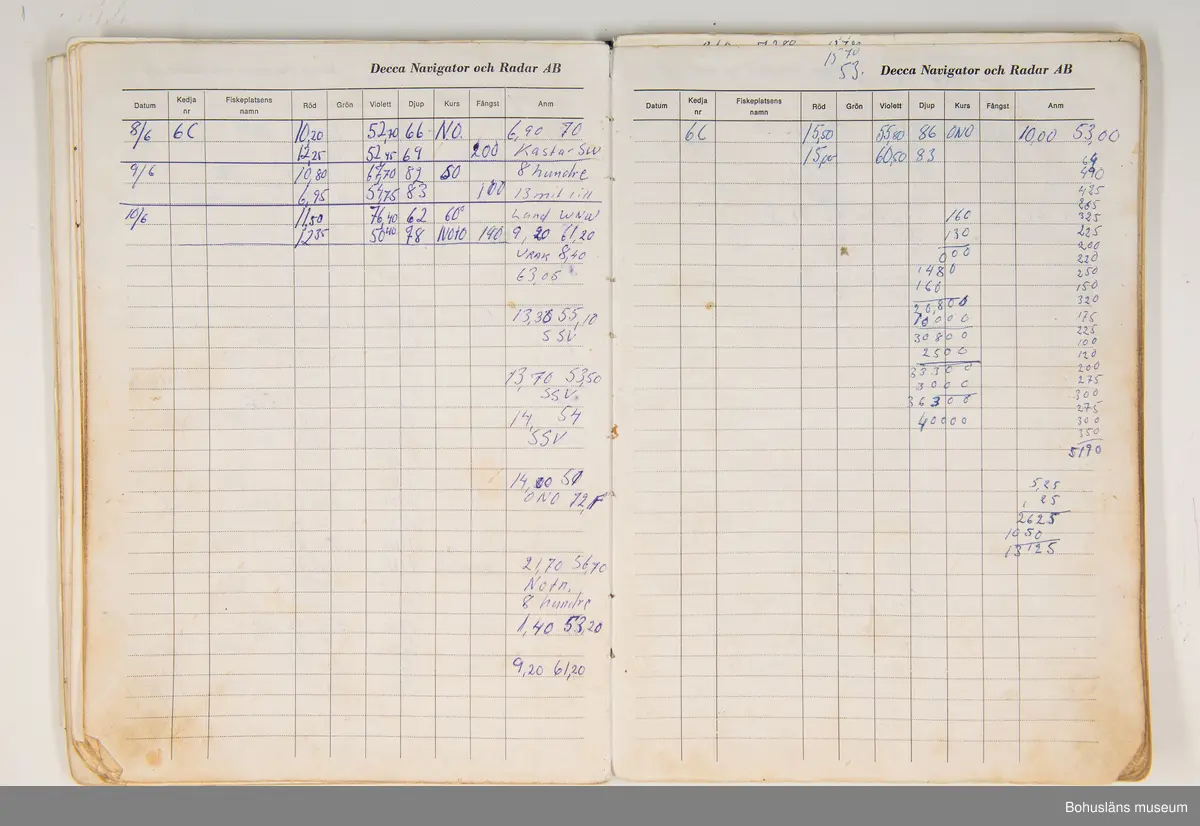 Decca Navigator och Radar AB
Datum Kedja nr Fiskeplatsens namn Röd Grön Violett Djup Kurs Fångst Anm
8/6 6C 10,20 52,70 66 NO. 6,90 70
12,25 52,45 69 200 Kasta-SW
9/6 10,80 67,70 89 50 8 hundre
6,95 51,75 83 100 13 mil till
10/6 11,50 76,40 62 60° Land WNW
12,35 50,40 78 Noto 190 9,20 61,20
VRAK 8,40
63,05
13,30 55,10
SSV
13,70 53,50
SSV.
14, 54
SSV
14,00 51
ONO
21,70 56,70
Notn.
8 hundre
1,40 53,20
9,20 61,20
53.
Decca Navigator och Radar AB
Datum Kedja nr Fiskeplatsens namn Röd Grön Violett Djup Kurs Fångst Anm
6C 15,50 55,80 86 ONO 10,00 53,00
15,00 60,50 83 64
490
425
265
160 325
130 225
200
000 220
1480 250
160 150
20,800 320
10000 175
30800 225
100
2500 120
33300 200
3000 275
36300 300
275
40000 300
350
5190
5,25
, 25
2625
1050
13125
Bohusläns museum